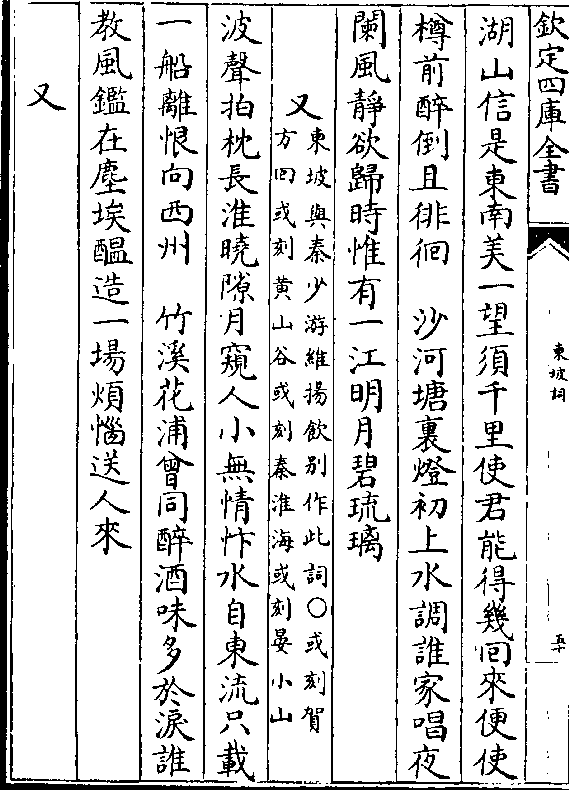 欽定四庫全書
東坡詞
五十
湖山信是東南美一望須千里使君能得幾回來便使
樽前醉倒且徘徊　沙河塘裏燈初上水調誰家唱夜
闌風靜欲歸時惟有一江明月碧琉璃
又東坡與秦少游維揚飲別作此詞〇或刻賀
方回或刻黄山谷或刻秦淮海或刻晏小山
波聲拍枕長淮曉隙月窺人小無情忭水自東流只載
一船離恨向西州　竹溪花浦曾同醉酒味多於淚誰
教風鑑在塵埃醞造一場煩惱送人來
又